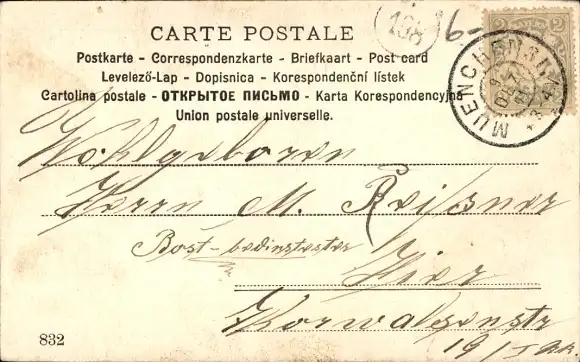 CARTE POSTALE
Postkarte - Correspondenzkarte - Briefkaart - Post card
Levelező-Lap - Dopisnica - Korespondenční lístek
Cartolina postale - ОТКРЫТОЕ ПИСЬМО - Karta Korespondencyjna
Union postale universelle.
138
6-
2 2
MUENCHEN
Wohlgeboren
Herrn M. Reißner
Hier
832